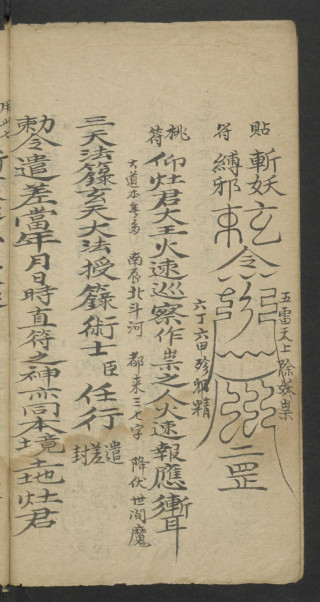 貼符
斬妖縛邪
五雷天上除妖祟
玄
二罡
六丁六甲殄邪精
桃符
仰灶君大王火速巡察作祟之人火速報應漸耳
南辰北斗河 都来三七字 降伏世间魔
三天法籙玄天大法授籙術士臣 任行 遣差封
勅令遣差當年月日時直符之神亦同本境土地灶君